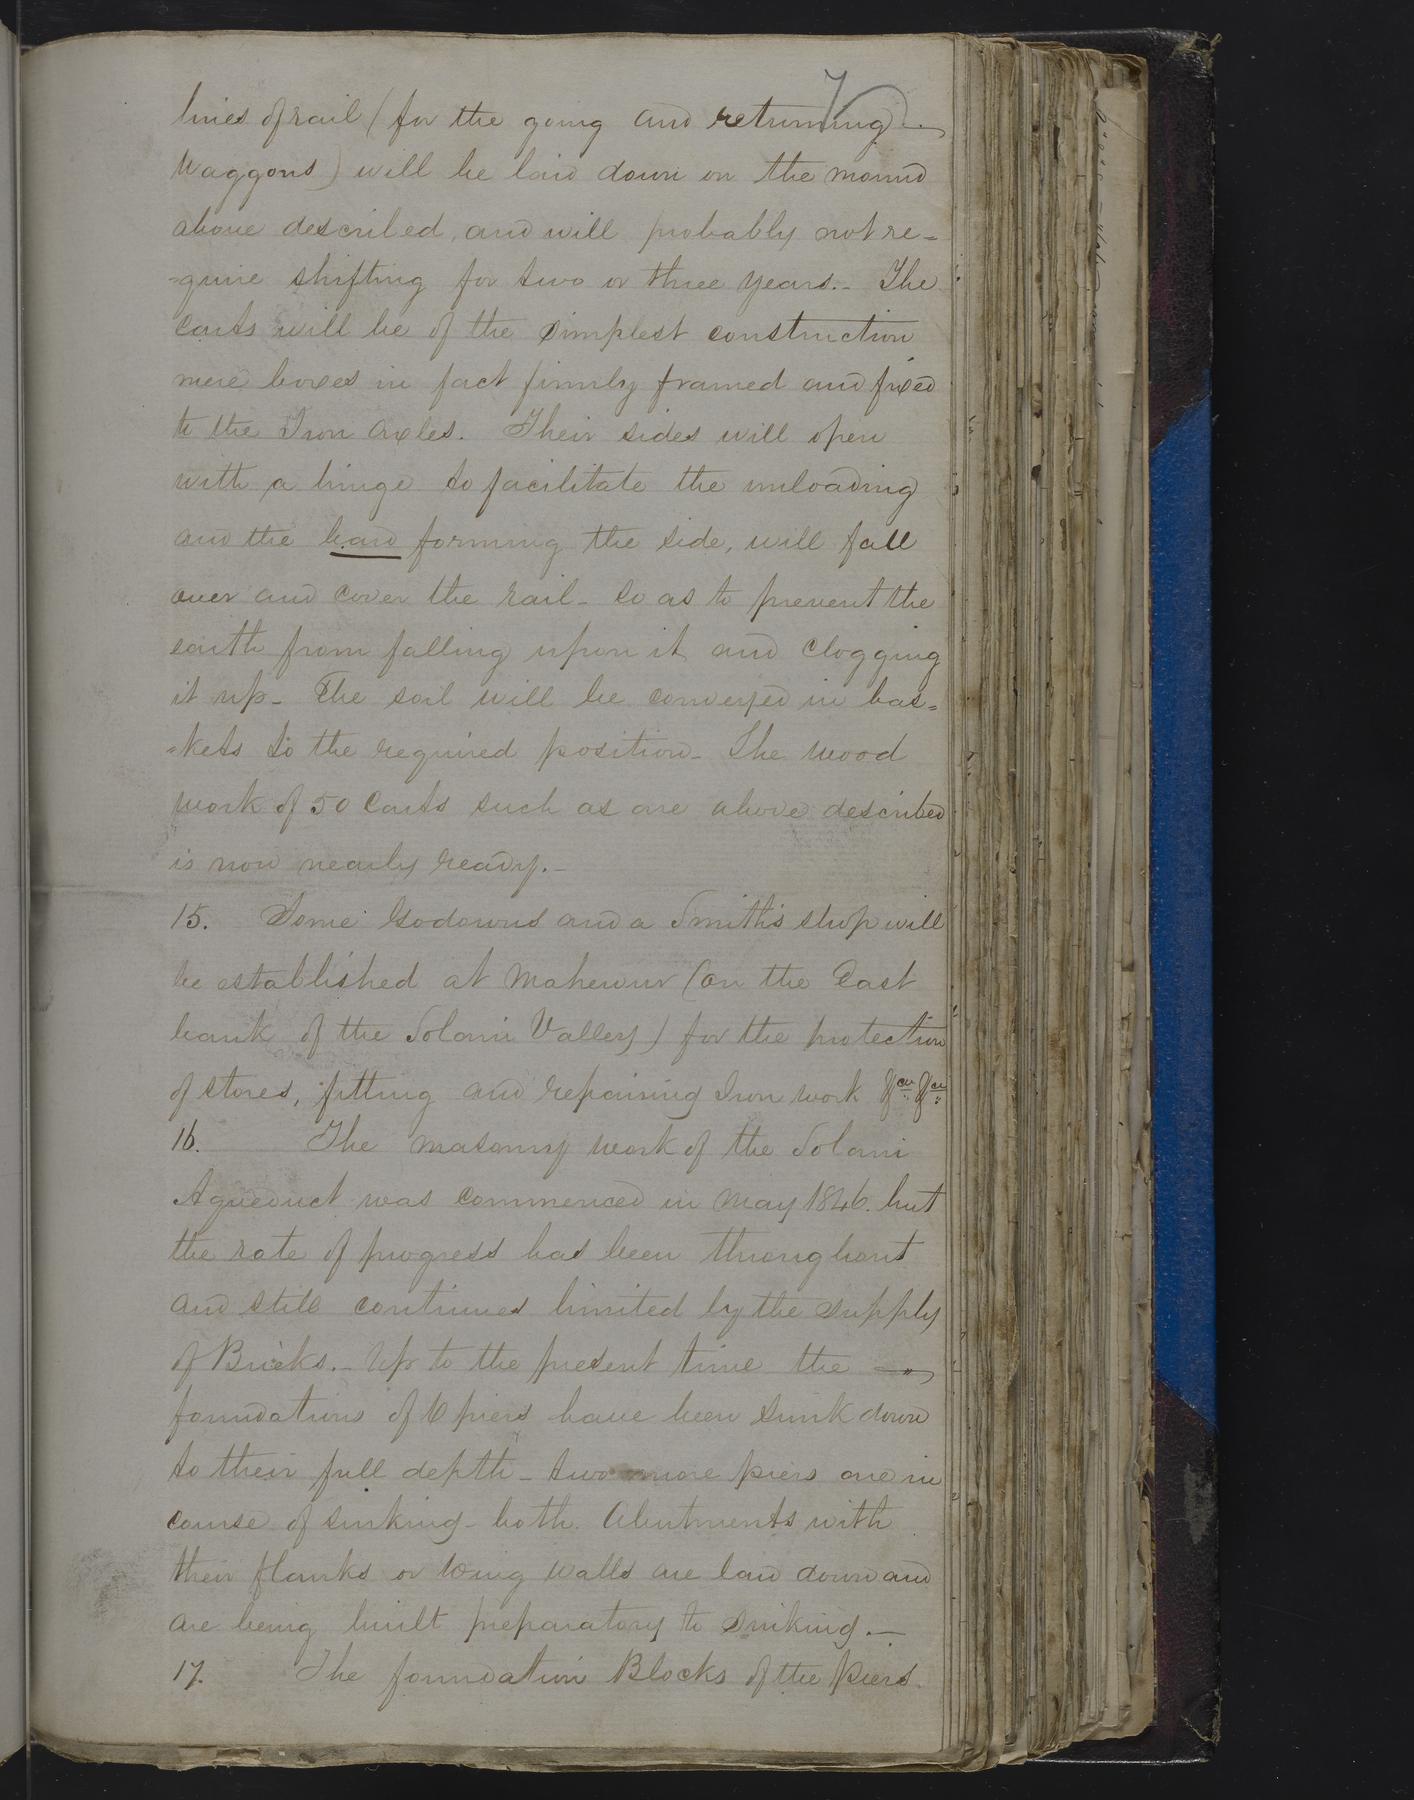 lines of rail (for the going and returning
Waggons) will be laid down on the mound
above described, and will probably not re-
=quire shifting for two or three years.- The
Carts will be of the simplest construction
mere boxes in fact firmly framed and fixed
to the Iron axles. Their sides will open
with a hinge to facilitate the unloading
and the board forming the side, will fall
over and cover the rail - so as to prevent the
earth from falling upon it and clogging
it up - The soil will be conveyed in bas=
=kets to the required position - The wood
work of 50 Carts such as are above described
is now nearly ready.-
15. Some Godowns and a Smith's shop will
be established at Mahewur (on the East
bank of the Solani Valley) for the protection
of stores, fitting and repairing Iron work &ca &ca
16. The masonry work of the Solani
Aqueduct was commenced in May 1846. but
the rate of progress has been throughout
and still continues limited by the supply
of Bricks.- Up to the present time the
foundations of 6 piers have been sunk down
to their full depth - two more piers are in
course of sinking - both Abutments with
their flanks or wing walls are laid down and
are being built preparatory to sinking.-
17. The foundation Blocks of the Piers.